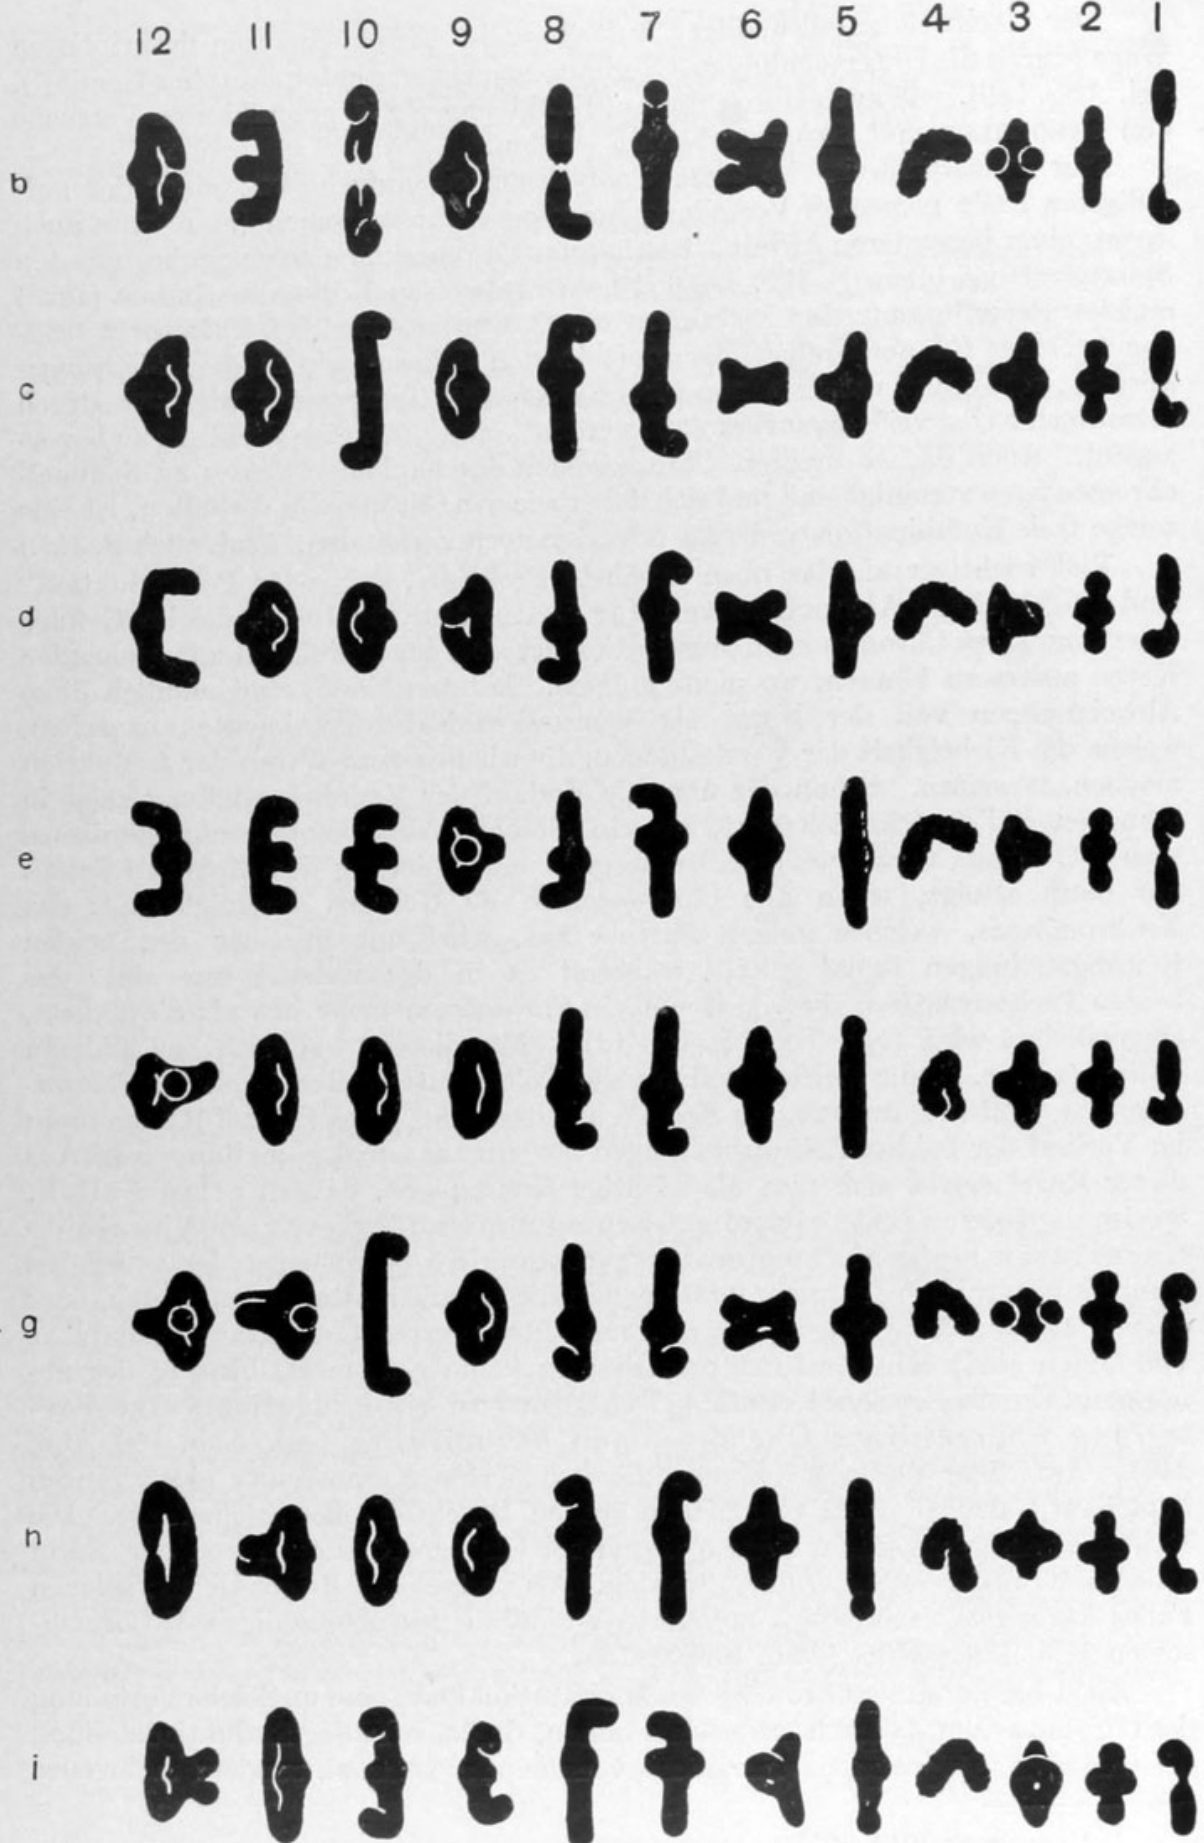 12 11 10 9 8 7 6 5 4 3 2 1
b
c
d
e
g
n
i